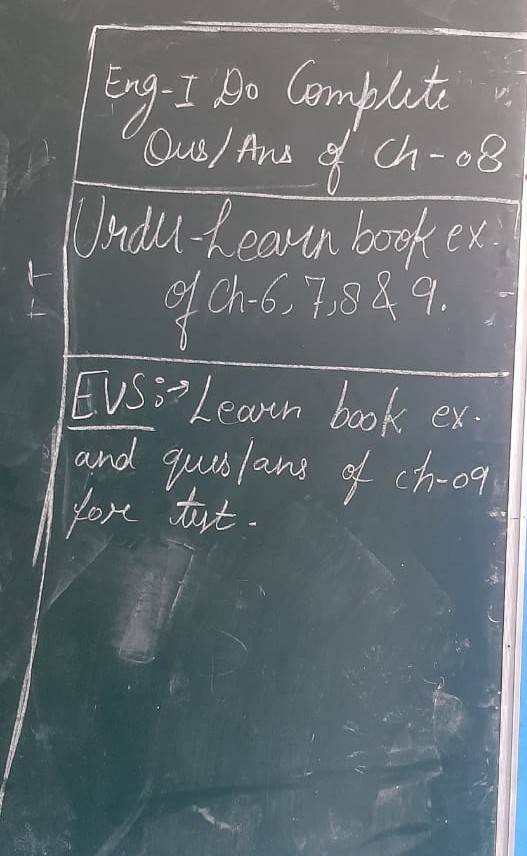 Eng-I Do Complete
Qus/Ans of Ch-08
Urdu-Learn book ex.
of Ch-6, 7, 8 & 9.
EVS:→ Learn book ex.
and ques/ans of ch-09
fore test.